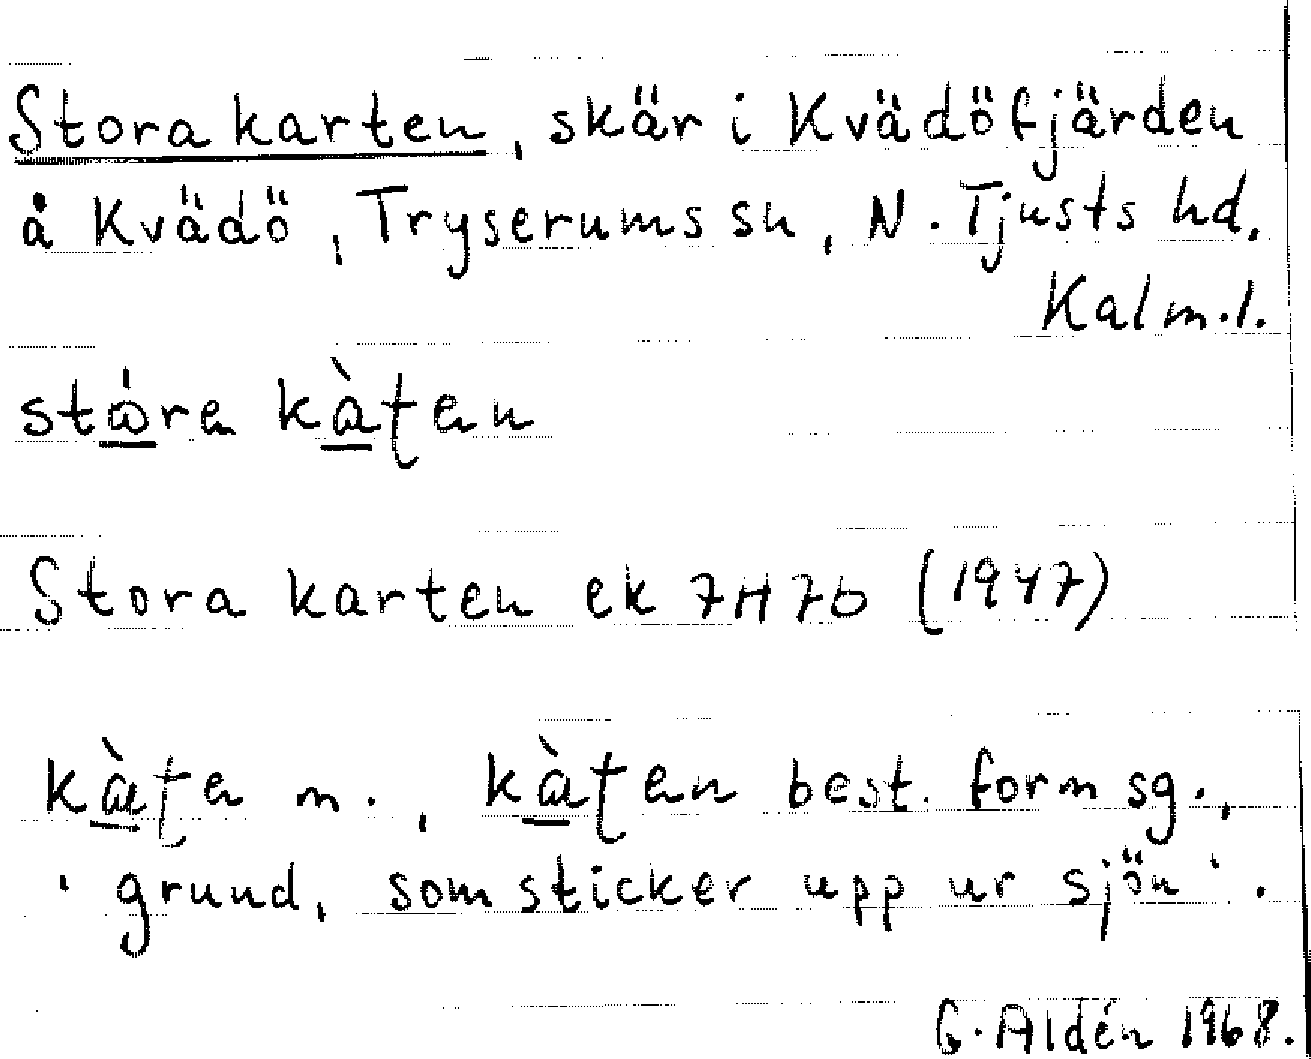 Stora karten, skär i Kvädöfjärden
å Kvädö, Tryserums sn, N. Tjusts hd,
Kalm.l.
stώ̲ra kà̲ʈan
Stora karten ek 7H7b (1947)
kà̲ʈa m., kà̲ʈan best. form sg.,
'grund, som sticker upp ur sjön'.
G. Aldén 1968.